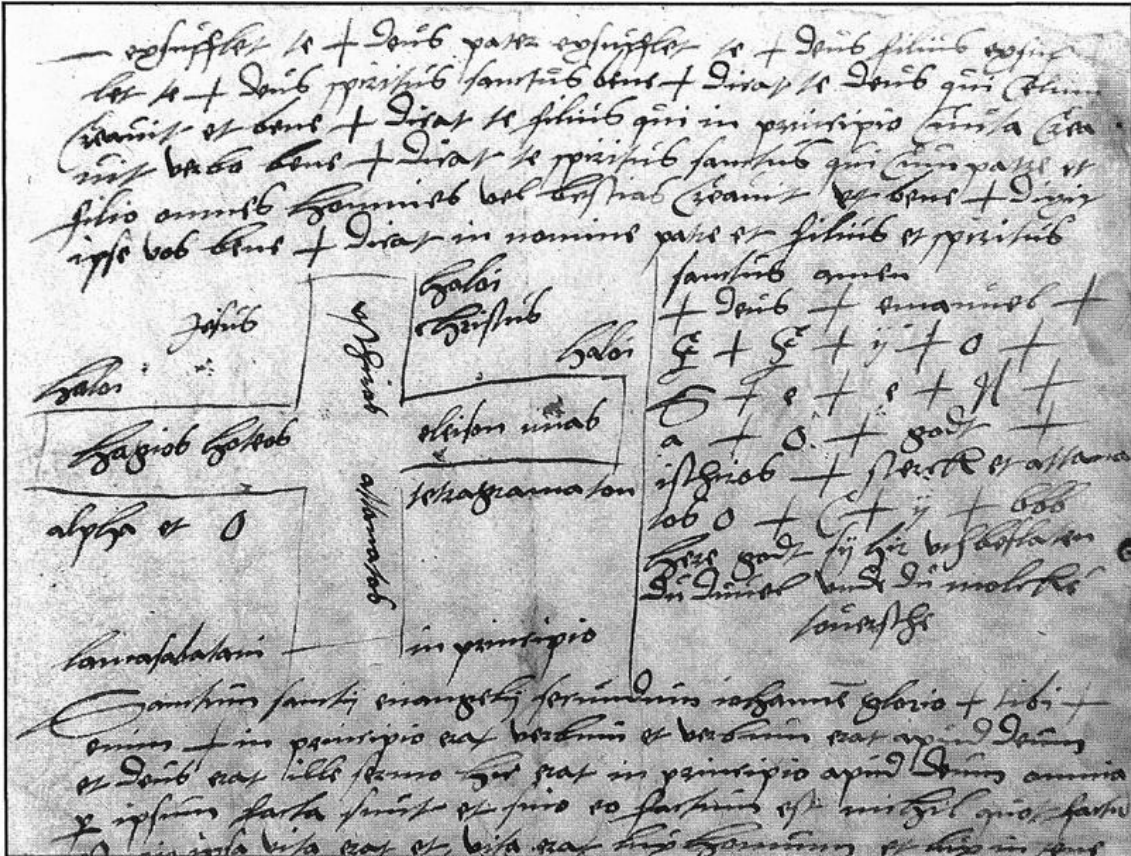 exsufflet te + deus pater exsufflet te + deus filius exsuf
let te + deus spiritus sanctus bene + dicat te deus qui celum
creauit et bene + dicat te filius qui in principio cunta crea
uit verbo bene + dicat te spiritus sanctus qui cum patre et
filio omnes homines vel bestias creauit et bene + dixit
ipse vos bene + dicat in nomine patre et filius et spiritus
sanctus amen
Jesus
haloi
hagios hoteos
alpha et O
lamasabatani
yschiros attanatos
haloi
christus
haloi
eleison
tetragramaton
in principio
+ deus + emanuel +
+ + ÿ + o +
+ e + e + +
a + o + godt +
ischiros + stercke et attana
tos o + c + ÿ + bbb
here godt sÿ hir
du duuel unde du molcke
touersche
Sanctum sanctij euangelij secundum iohanne glorio + tibi +
enim + in principio erat verbum et verbum erat apud deum
et deus erat ille sermo hic erat in principio apud deum omnia
p ipsum facta sunt et sine eo factum est nichil quot factu
ipsa vita erat et vita erat lux hominum et lux in tene